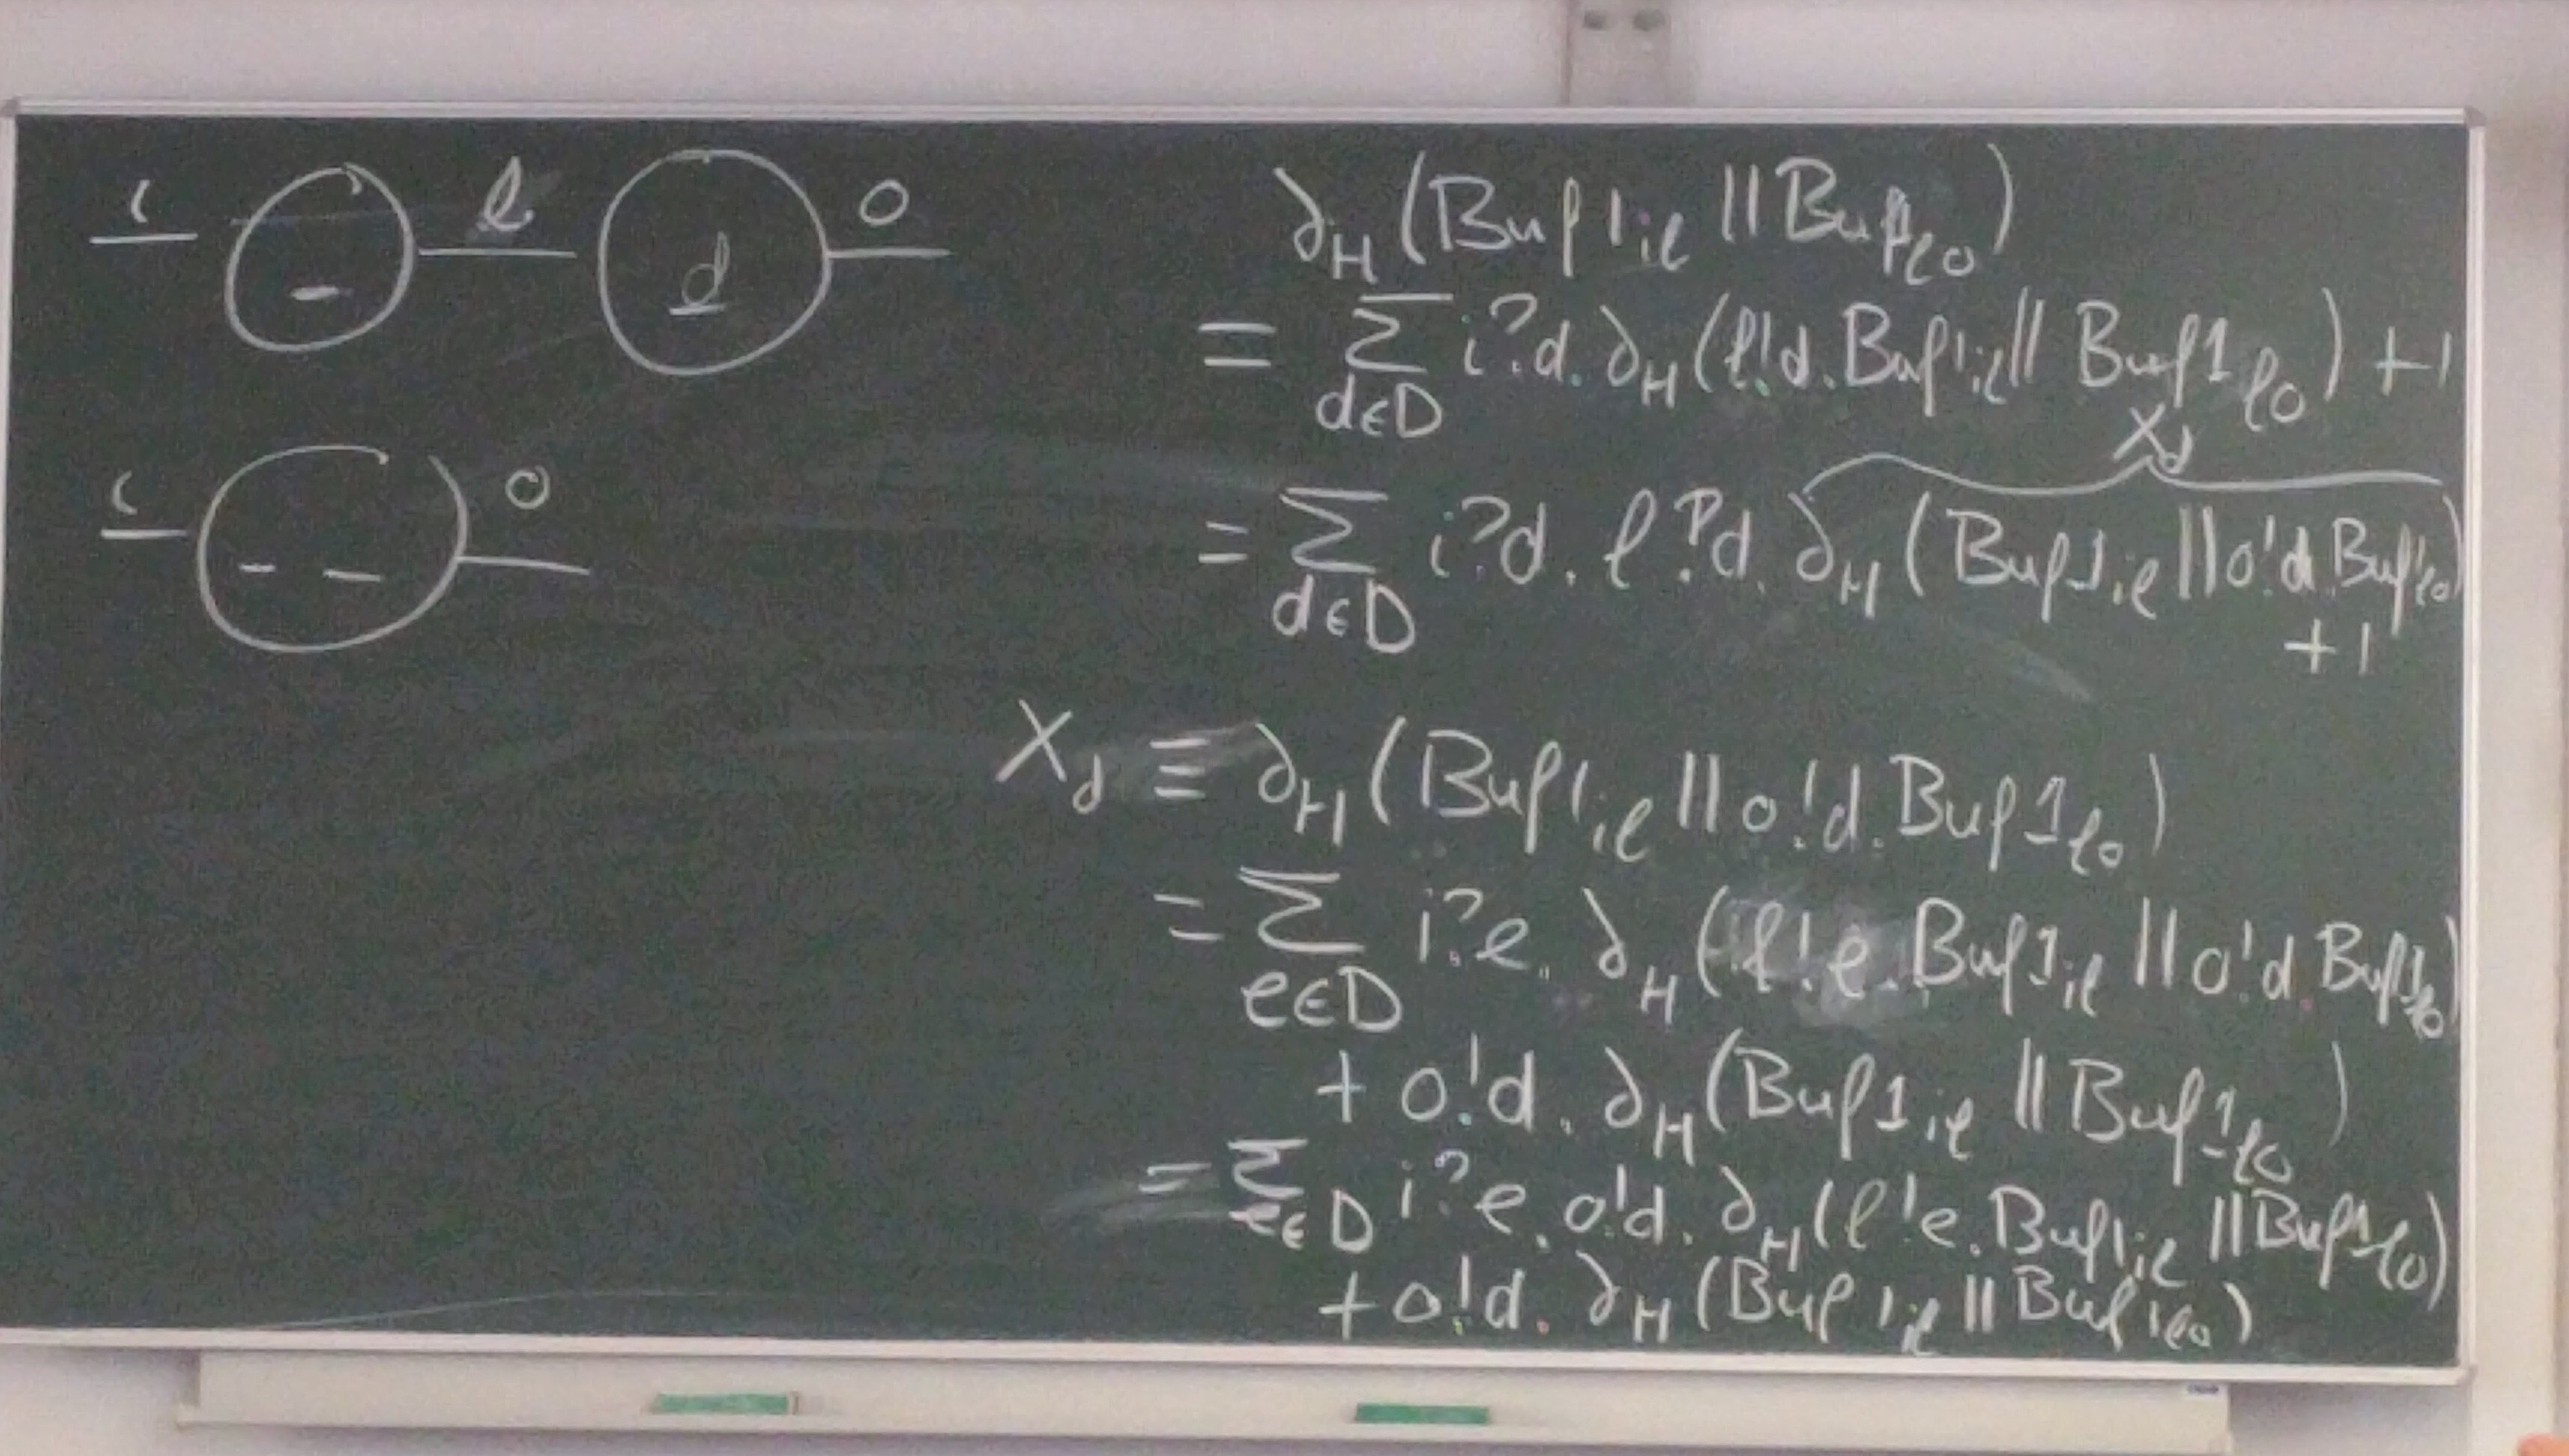 i l o
d
i o
∂H (Buf1il || Buf1lo)
= Σ d∈D i?d. ∂H (l!d. Buf1il || Buf1lo) + 1
Xd
= Σ d∈D i?d. l?d. ∂H (Buf1il || o!d. Buf1lo)
+ 1
Xd ≡ ∂H (Buf1il || o!d. Buf1lo)
= Σ e∈D i?e. ∂H (l!e. Buf1il || o!d. Buf1lo)
+ o!d. ∂H (Buf1il || Buf1lo)
= Σ e∈D i?e. o!d. ∂H (l!e. Buf1il || Buf1lo)
+ o!d. ∂H (Buf1il || Buf1lo)